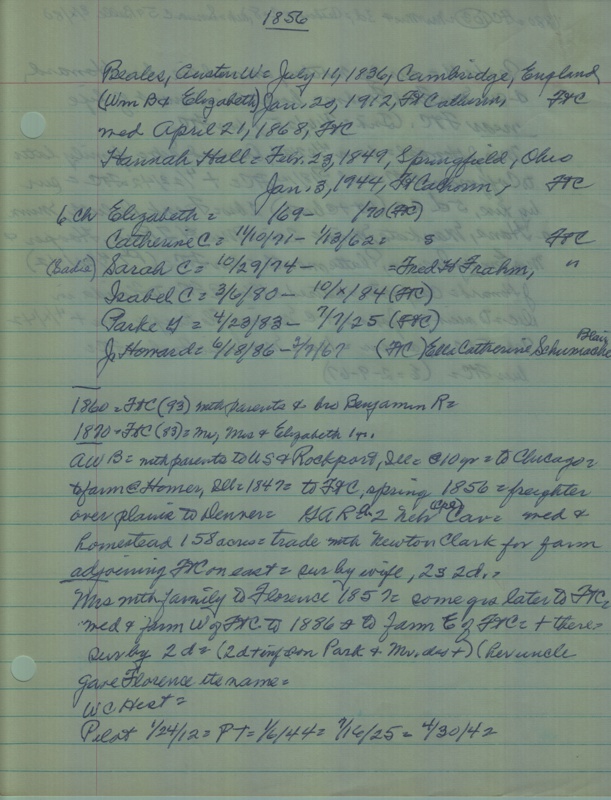 1856
Beales, Austin W = July 11, 1836, Cambridge, England
(Wm B & Elizabeth) Jan. 20, 1912, Ft Calhoun, FtC
med April 21, 1868, FtC
Hannah Hall = Feb. 23, 1849, Springfield, Ohio
Jan. 3, 1944, Ft Calhoun, FtC
6 ch Elizabeth = /69 - /70 (FtC)
Catherine C = 11/10/71 - 1/13/62 = s FtC
(Sadie) Sarah C = 10/29/74 - = Fred H Frahm, "
Isabel C = 3/6/80 - 10/x/84 (FtC)
Parke G = 4/23/83 - 7/7/25 (FtC)
J Howard = 6/18/86 - 2/7/67 (FtC) Ella Catherine Schumacher Blair
1860 = FtC (93) with parents & bro Benjamin R =
1870 = FtC (83) = Mr, Mrs & Elizabeth 1 yr.
AWB = with parents to US & Rockport, Ill = @ 10 yr = to Chicago =
to farm @ Homer, Ill = 1847 = to FtC, spring 1856 = freighter
over plains to Denver = GAR = 2 Neb Cav = med &
homestead 158 acres = trade with Newton Clark for farm
adjoining FtC on east = sur by wife, 2s 2d. =
Mrs with family to Florence 1857 = some yrs later to FtC,
med & farm W of FtC to 1886 & to farm E of FtC = + there =
sur by 2d = (2d + son Park & Mr. des +) (her uncle
gave Florence its name =
WC Hest =
Pilot 1/24/12 = PT = 1/6/44 = 7/16/25 = 4/30/42